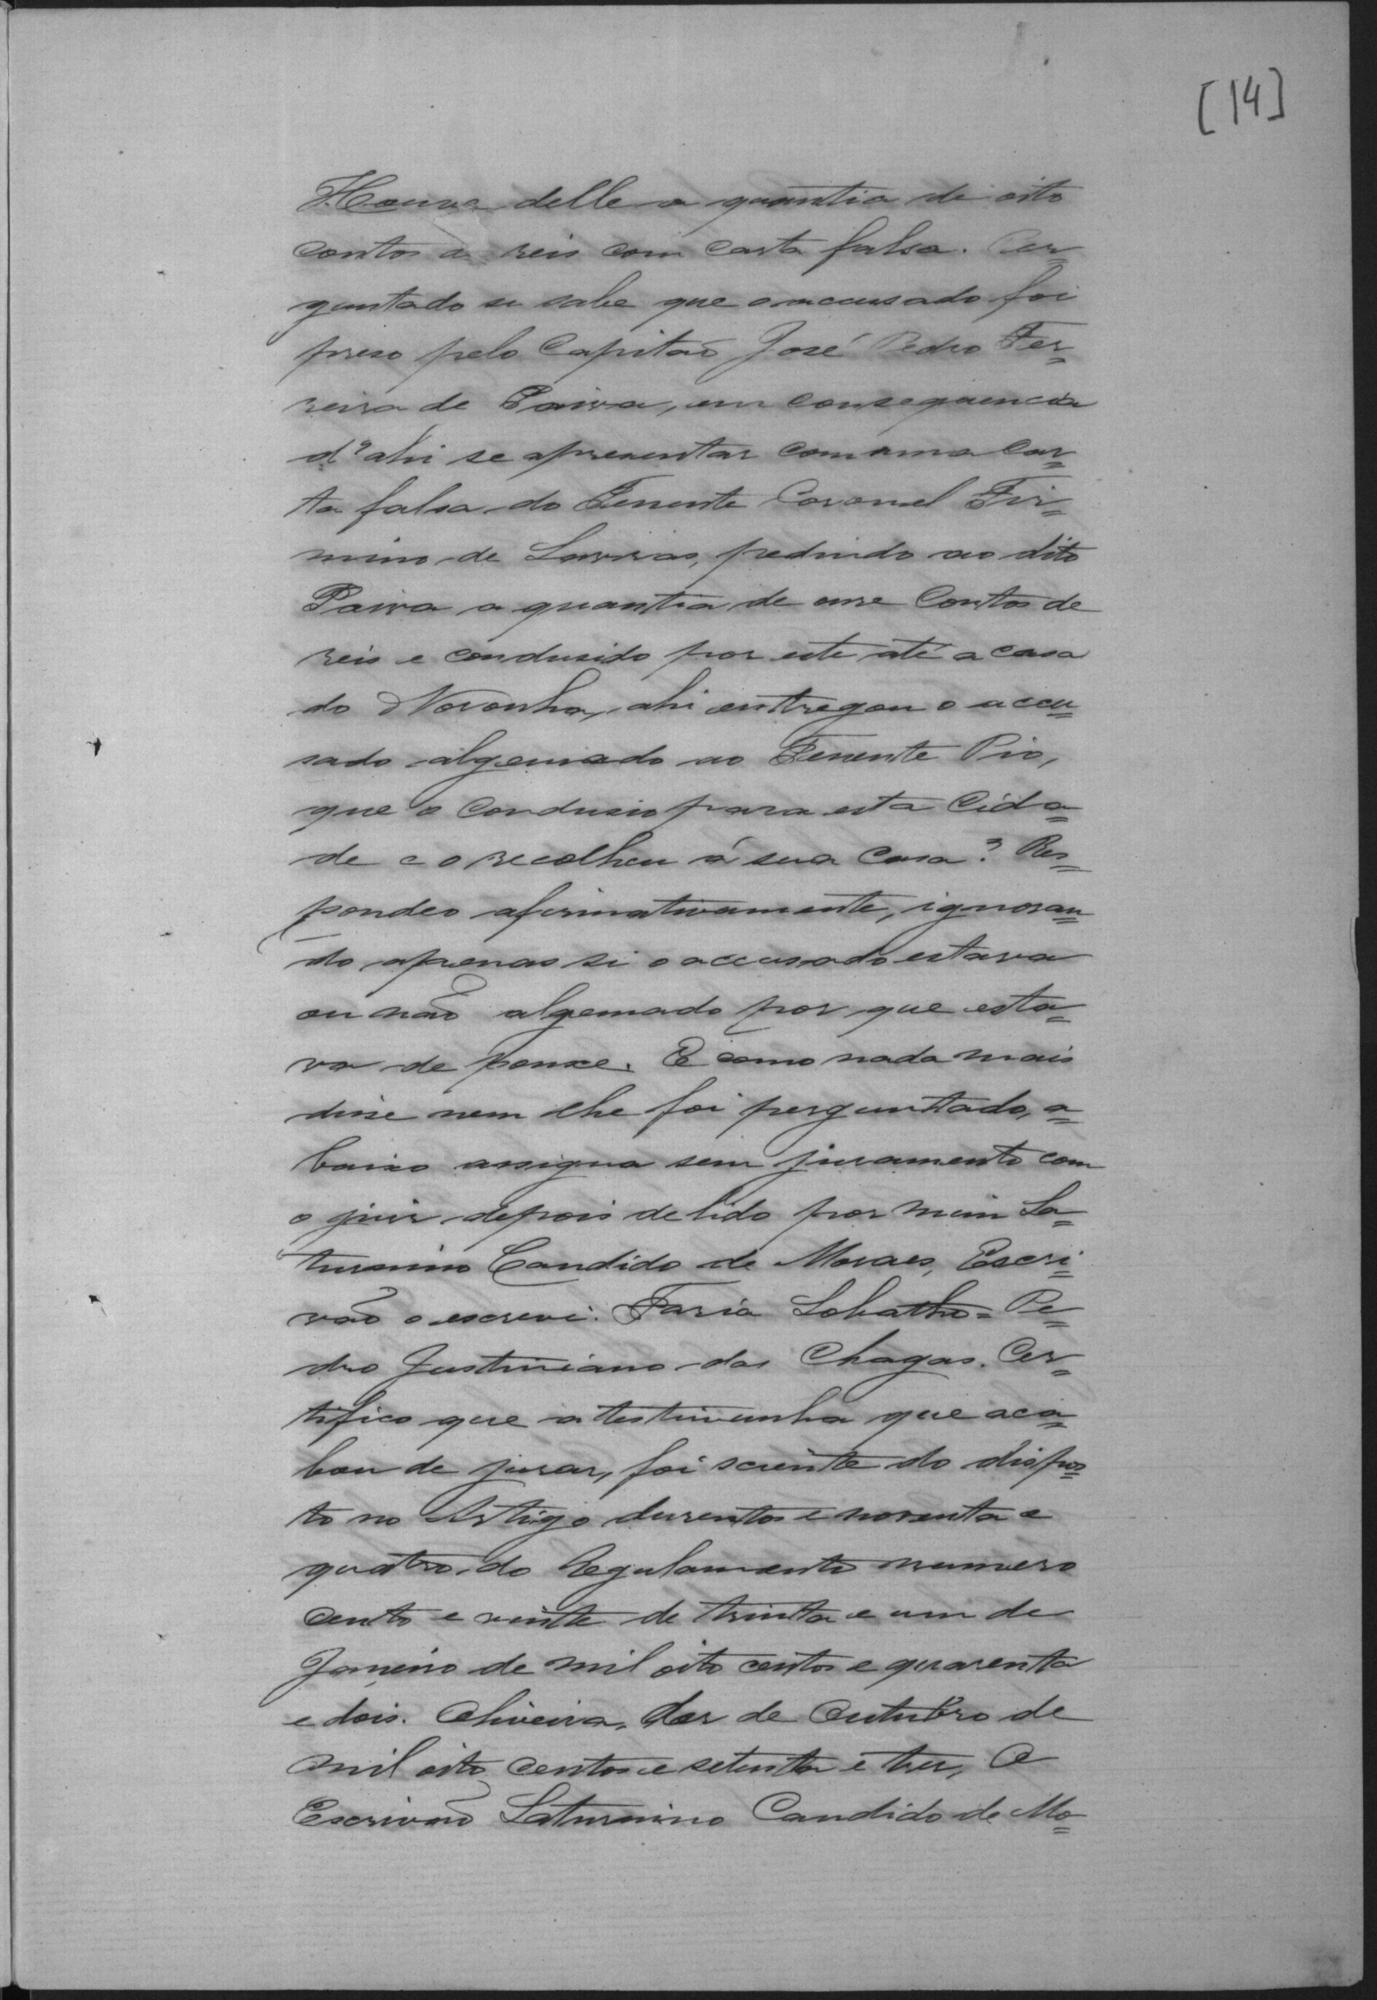 [14]
Houve delle a quantia de oito
contos de reis com carta falsa. Per=
guntado se sabe que o accusado foi
preso pelo Capitão José Pedro Fer=
reira de Paiva, em consequencia
d'ahi se apresentar com uma car=
ta falsa do Tenente Coronel Fir=
mino de Lavras, pedindo ao dito
Paiva a quantia de onse Contos de
reis e condusido por este até a casa
do Noronha, ahi entregou o accu=
sado algemado ao Tenente Pio,
que o condusio para esta Cida=
de e o recolheu á sua casa? Res=
pondeo afirmativamente, ignoran=
do apenas si o accusado estava
ou não algemado por que esta=
va de ponxe. E como nada mais
disse nem lhe foi perguntado, a=
baixo assigna sem juramento com
o juiz depois de lido por mim Sa=
turnino Candido de Moraes, Escri=
vão o escrevi. Faria Lobatho= Pe=
dro Justiniano das Chagas. Cer=
tifico que a testimunha que aca=
bou de jurar, foi sciente do dispos=
to no Artigo dusentos e noventa e
quatro do Regulamento numero
cento e vinte de trinta e um de
Janeiro de mil oito centos e quarenta
e dois. Oliveira, des de Outubro de
mil oito centos e setenta e tres, O
Escrivão Saturnino Candido de Mo=